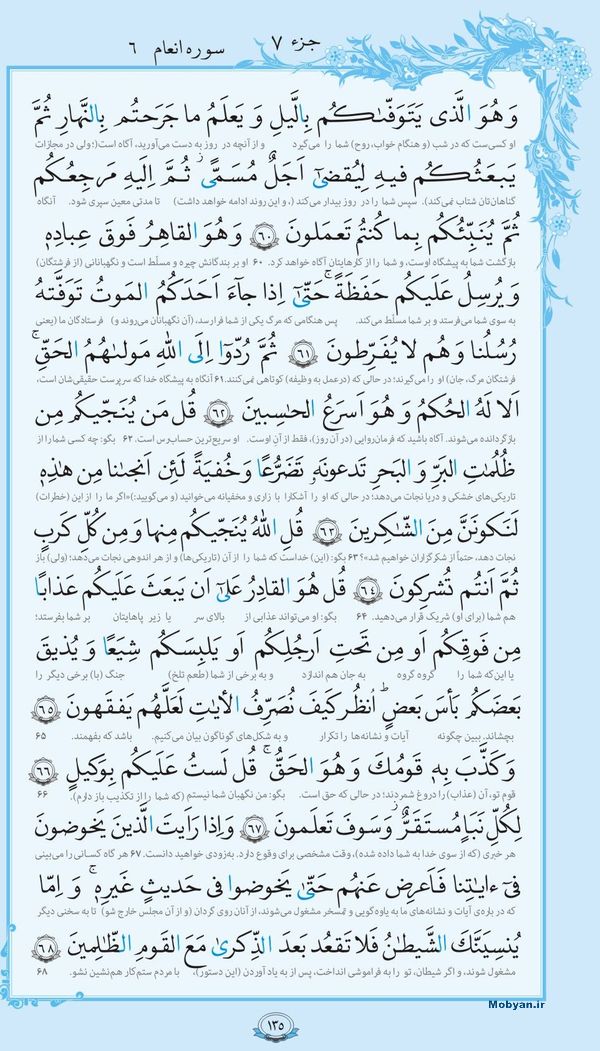 جزء ۷
سوره انعام ۶
وَ هُوَ الَّذی یَتَوَفّىٰکُم بِالَّیلِ وَ یَعلَمُ ما جَرَحتُم بِالنَّهارِ ثُمَّ
او کسی‌ست که در شب (و هنگام خواب، روح) شما را می‌گیرد و از آنچه در روز به دست می‌آورید، آگاه است؛(ولی در مجازات
یَبعَثُکُم فیهِ لِیُقضىٰٓ اَجَلٌ مُسَمًّىۖ ثُمَّ اِلَیهِ مَرجِعُکُم
گناهان‌تان شتاب نمی‌کند). سپس شما را در روز بیدار می‌کند (، و این روند ادامه خواهد داشت) تا مدتی معین سپری شود. آنگاه
ثُمَّ یُنَبِّئُکُم بِما کُنتُم تَعمَلونَ ﴿٦٠﴾ وَ هُوَ القاهِرُ فَوقَ عِبادِهٖ
بازگشت شما به پیشگاه اوست، و شما را از کارهایتان آگاه خواهد کرد. ۶۰ او بر بندگانش چیره و مسلّط است و نگهبانانی (از فرشتگان)
وَ یُرسِلُ عَلَیکُم حَفَظَةً حَتّىٰٓ اِذا جآءَ اَحَدَکُمُ المَوتُ تَوَفَّتهُ
به سوی شما می‌فرستد و بر شما مسلّط می‌کند. پس هنگامی که مرگ یکی از شما فرا رسد، (آن نگهبانان می‌روند و) فرستادگان ما (یعنی
رُسُلُنا وَ هُم لا یُفَرِّطونَ ﴿٦١﴾ ثُمَّ رُدّوٓا اِلَى اللهِ مَولىٰهُمُ الحَقِّۚ
فرشتگان مرگ، جان) او را می‌گیرند؛ در حالی که (در عمل به وظیفه) کوتاهی نمی‌کنند. ۶۱ آنگاه به پیشگاه خدا که سرپرست حقیقی‌شان است،
اَلا لَهُ الحُکمُ وَ هُوَ اَسرَعُ الحٰسِبینَ ﴿٦٢﴾ قُل مَن یُنَجّیکُم مِن
بازگردانده می‌شوند. آگاه باشید که فرمان‌روایی (در آن روز)، فقط از آنِ اوست. او سریع‌ترین حساب‌رس است. ۶۲ بگو: چه کسی شما را از
ظُلُمٰتِ البَرِّ وَ البَحرِ تَدعونَهٗ تَضَرُّعًا وَ خُفیَةً لَئِن اَنجٰىنا مِن هٰذِهٖ
تاریکی‌های خشکی و دریا نجات می‌دهد؛ در حالی که او را آشکارا با زاری و مخفیانه می‌خوانید (و می‌گویید:) «اگر ما را از این (خطرات)
لَنَکونَنَّ مِنَ الشّٰکِرینَ ﴿٦٣﴾ قُلِ اللهُ یُنَجّیکُم مِنها وَ مِن کُلِّ کَربٍ
نجات دهد، حتماً از شکرگزاران خواهیم شد»؟ ۶۳ بگو: (این) خداست که شما را از آن (تاریکی‌ها) و از هر اندوهی نجات می‌دهد؛ (ولی) باز
ثُمَّ اَنتُم تُشرِکونَ ﴿٦٤﴾ قُل هُوَ القادِرُ عَلىٰٓ اَن یَبعَثَ عَلَیکُم عَذابًا
هم شما (برای او) شریک قرار می‌دهید. ۶۴ بگو: او می‌تواند عذابی از بالای سر یا زیر پاهایتان بر شما بفرستد؛
مِن فَوقِکُم اَو مِن تَحتِ اَرجُلِکُم اَو یَلبِسَکُم شِیَعًا وَ یُذیقَ
یا این که شما را گروه گروه به جان هم اندازد و به برخی از شما (طعم تلخ) جنگ (با) برخی دیگر را
بَعضَکُم بَأسَ بَعضٍۗ اُنظُر کَیفَ نُصَرِّفُ الأیٰتِ لَعَلَّهُم یَفقَهونَ ﴿٦٥﴾
بچشاند. ببین چگونه آیات و نشانه‌ها را تکرار و به شکل‌های گوناگون بیان می‌کنیم. باشد که بفهمند. ۶۵
وَ کَذَّبَ بِهٖ قَومُکَ وَ هُوَ الحَقُّۚ قُل لَستُ عَلَیکُم بِوَکیلٍ ﴿٦٦﴾
قوم تو، آن (عذاب) را دروغ شمردند؛ در حالی که حق است. بگو: من نگهبان شما نیستم (که شما را از تکذیب باز دارم). ۶۶
لِکُلِّ نَبَاٍ مُستَقَرٌّۖ وَ سَوفَ تَعلَمونَ ﴿٦٧﴾ وَ اِذا رَاَیتَ الَّذینَ یَخوضونَ
هر خبری (که از سوی خدا به شما داده شده)، وقت مشخصی برای وقوع دارد. به‌زودی خواهید دانست. ۶۷ هر گاه کسانی را می‌بینی
فیٓ ءایٰتِنا فَاَعرِض عَنهُم حَتّىٰ یَخوضوا فی حَدیثٍ غَیرِهٖۚ وَ اِمّا
که در باره‌ی آیات و نشانه‌های ما به یاوه‌گویی و تمسخر مشغول می‌شوند، از آنان روی گردان (و از آن مجلس خارج شو) تا به سخنی دیگر
یُنسِیَنَّکَ الشَّیطٰنُ فَلا تَقعُد بَعدَ الذِّکرىٰ مَعَ القَومِ الظّٰلِمینَ ﴿٦٨﴾
مشغول شوند، و اگر شیطان، تو را به فراموشی انداخت، پس از به یاد آوردن (این دستور)، با مردم ستم‌کار هم‌نشین نشو. ۶۸
۱۳۵
Mobyan.ir